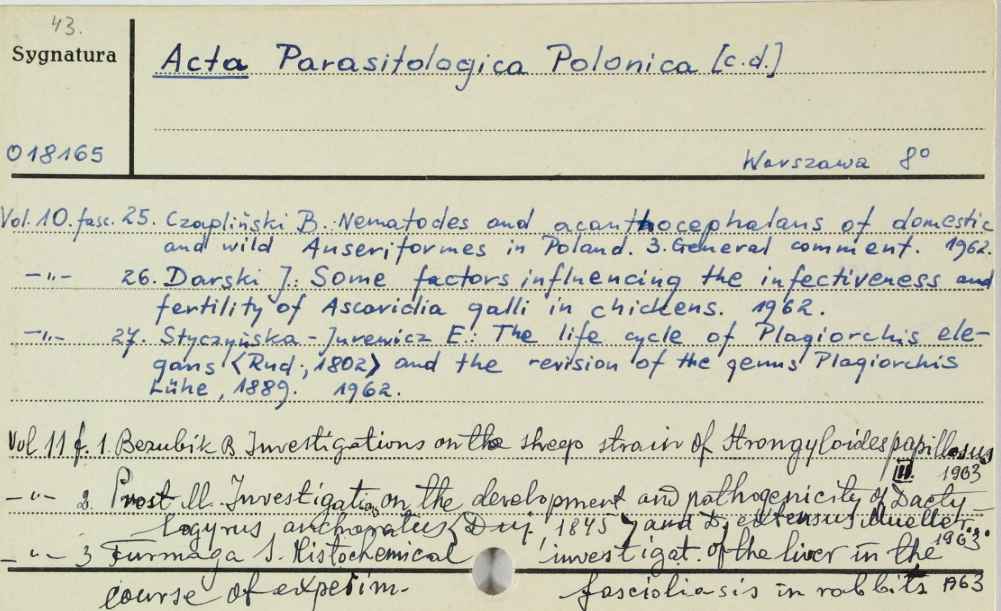 43.
Sygnatura
Acta Parasitologica Polonica [c.d.]
018165
Warszawa 8°
Vol. 10. fasc. 25. Czapliński B.: Nematodes and acanthocephalans of domestic
and wild Anseriformes in Poland. 3. General comment. 1962.
-"- 26. Darski J.: Some factors influencing the infectiveness and
fertility of Ascaridia galli in chickens. 1962.
-"- 27. Styczyńska-Jurewicz E.: The life cycle of Plagiorchis ele-
gans <Rud., 1802> and the revision of the genus Plagiorchis
Lühe, 1889. 1962.
Vol 11 f. 1. Bezubik B. Investigations on the sheep strain of Strongyloides papillosus
III. 1963
-"- 2. Prost M. Investigat. on the development and pathogenicity of Dacty-
logyrus anchoratus <Duj, 1845> and D. extensus Mueller.
1963.
-"- 3 Furmaga S. Histochemical investigat. of the liver in the
course of experim. fascioliasis in rabbits 1963